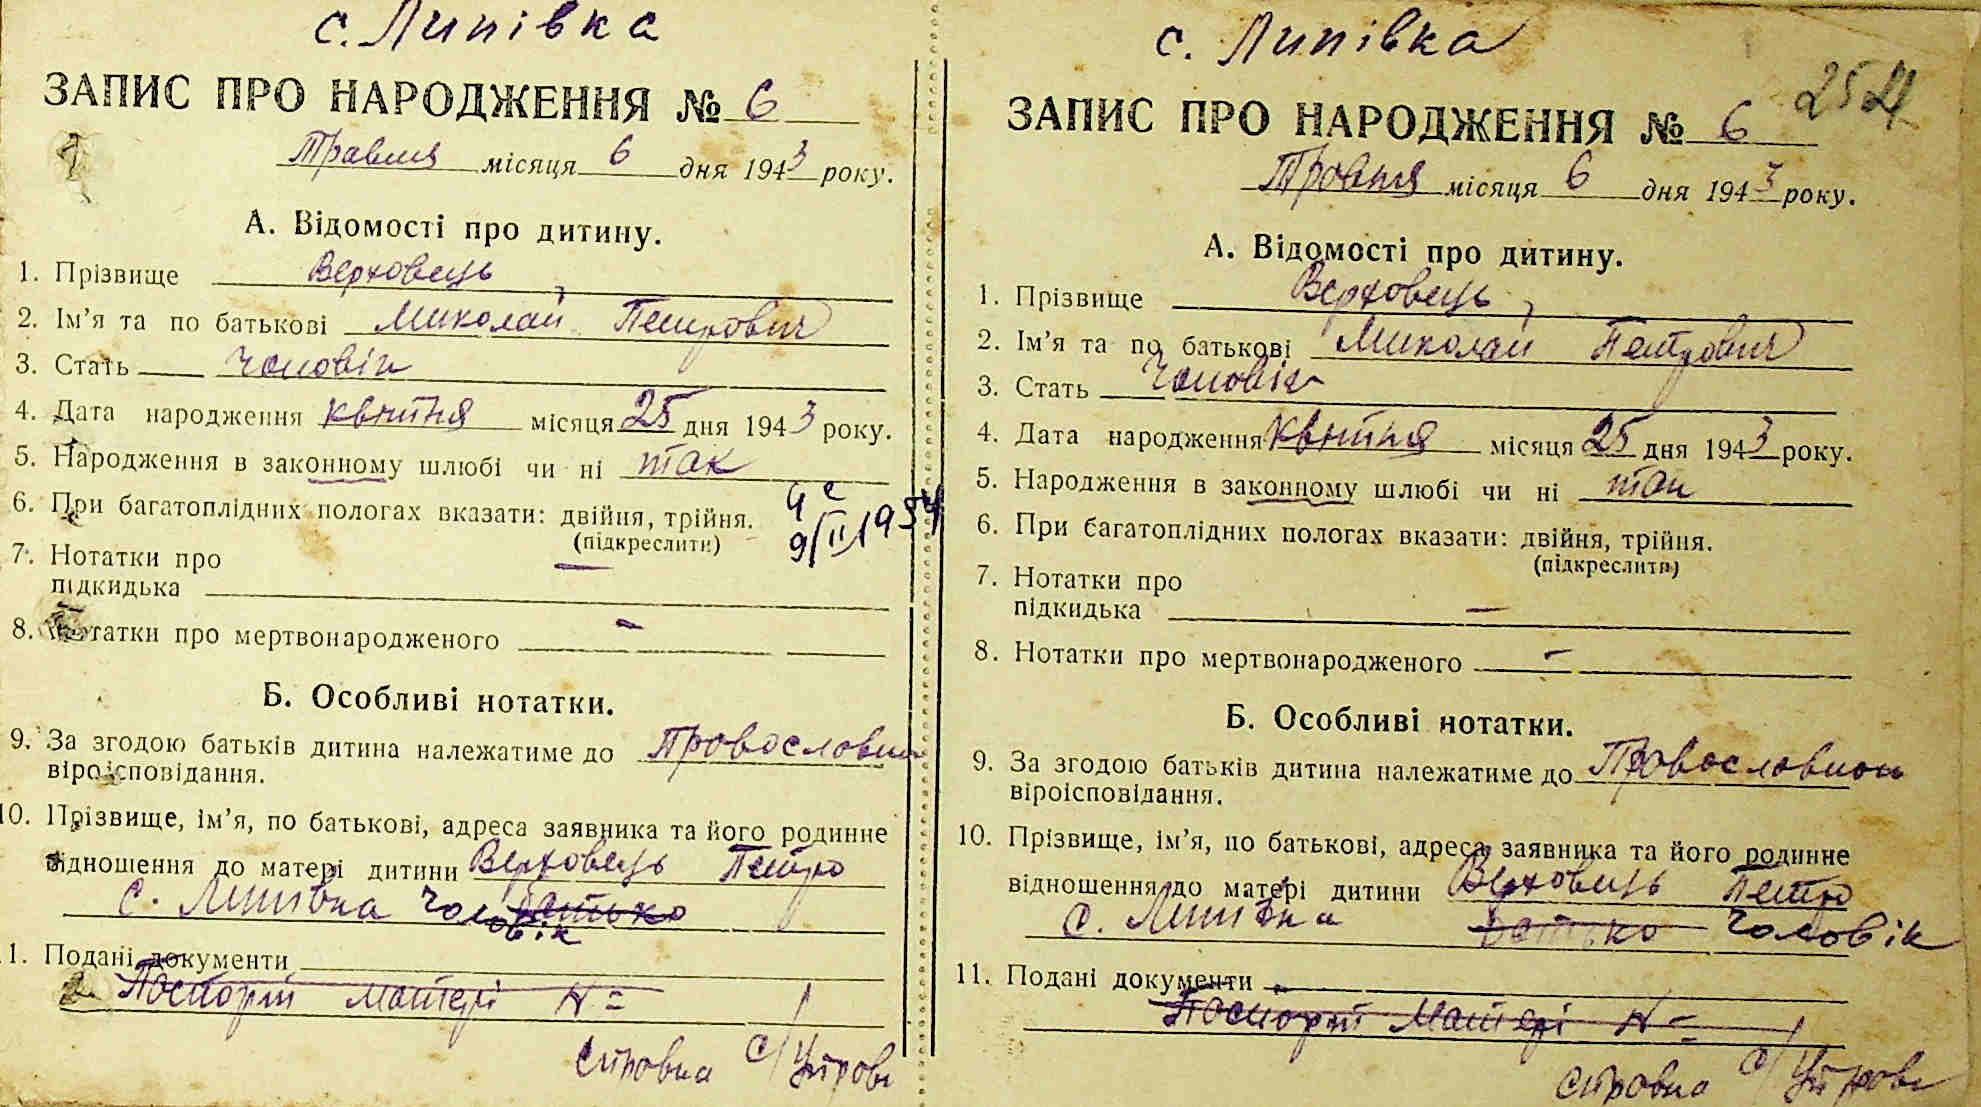 с. Липівка
ЗАПИС ПРО НАРОДЖЕННЯ № 6
Травня місяця 6 дня 1943 року.
А. Відомості про дитину.
1. Прізвище Верховець,
2. Ім'я та по батькові Миколай Петрович
3. Стать Чоловік
4. Дата народження квітня місяця 25 дня 1943 року.
5. Народження в законному шлюбі чи ні так
6. При багатоплідних пологах вказати: двійня, трійня.
(підкреслити)
9/II 1954
7. Нотатки про
підкидька —
8. Нотатки про мертвонародженого -
Б. Особливі нотатки.
9. За згодою батьків дитина належатиме до Провославно
віроісповідання.
10. Прізвище, ім'я, по батькові, адреса заявника та його родинне
відношення до матері дитини Верховець Петро
с. Липівка Чоловік батько
11. Подані документи
Паспорт матері N =
с. Липівка
ЗАПИС ПРО НАРОДЖЕННЯ № 6
254
Травня місяця 6 дня 1943 року.
А. Відомості про дитину.
1. Прізвище Верховець,
2. Ім'я та по батькові Миколай Петрович
3. Стать Чоловік
4. Дата народження Квітня місяця 25 дня 1943 року.
5. Народження в законному шлюбі чи ні так
6. При багатоплідних пологах вказати: двійня, трійня.
(підкреслити)
7. Нотатки про
підкидька —
8. Нотатки про мертвонародженого -
Б. Особливі нотатки.
9. За згодою батьків дитина належатиме до Провославного
віроісповідання.
10. Прізвище, ім'я, по батькові, адреса заявника та його родинне
відношення до матері дитини Верховець Петро
с. Липівка батько Чоловік
11. Подані документи
Паспорт Матері N =